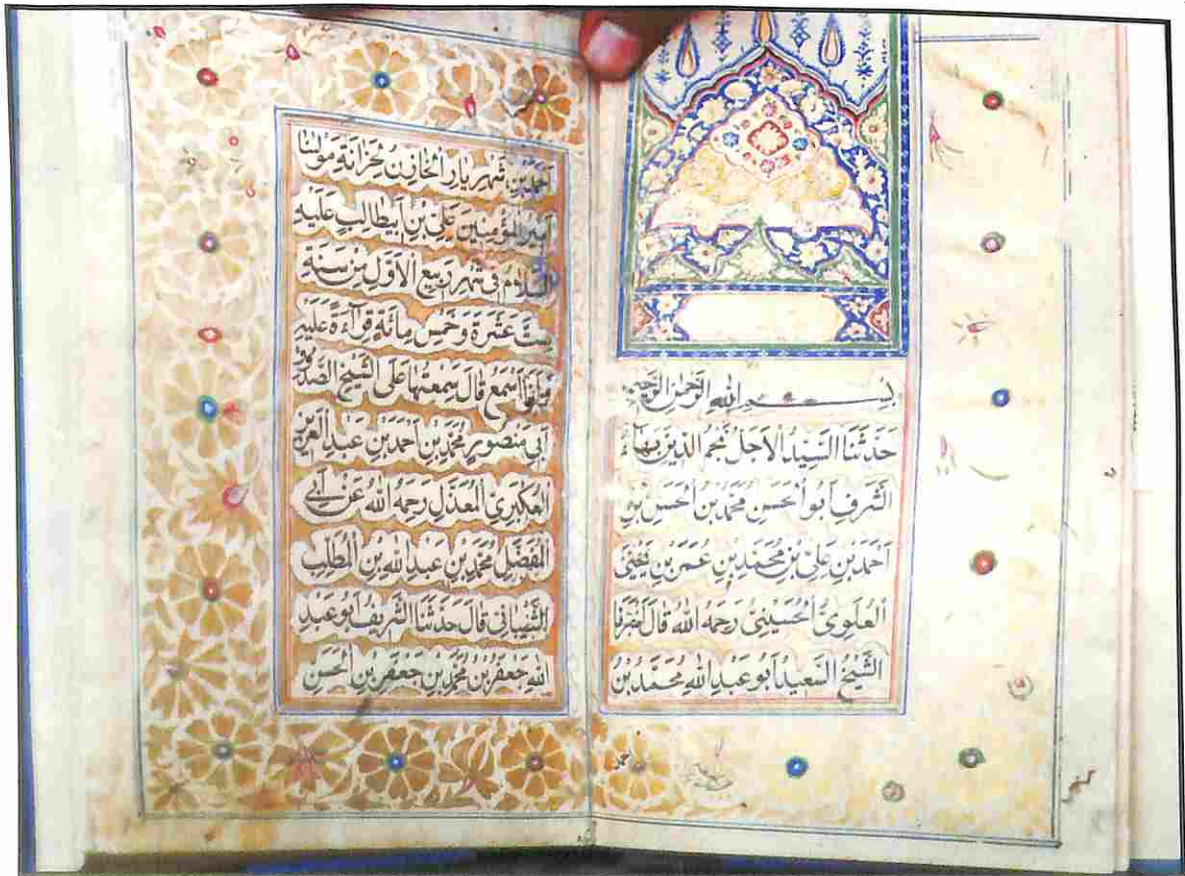 بِسْمِ اللهِ الرَّحْمٰنِ الرَّحِيمِ
حَدَّثَنَا السَّيِّدُ الْاَجَلُّ نَجْمُ الدّينِ بَهَاءُ
الشَّرَفِ اَبُو الْحَسَنِ مُحَمَّدُ بْنُ الْحَسَنِ بْنِ
اَحْمَدَ بْنِ عَلِيِّ بْنِ مُحَمَّدِ بْنِ عُمَرَ بْنِ يَحْيَى
الْعَلَوِيُّ الْحُسَيْنِيُّ رَحِمَهُ اللهُ قَالَ اَخْبَرَنَا
الشَّيْخُ السَّعِيدُ اَبُو عَبْدِ اللهِ مُحَمَّدُ بْنُ
اَحْمَدَ بْنِ شَهْرِيَارَ الْخَازِنُ لِخِزَانَةِ مَوْلٰينَا
اَمِيرِ الْمُؤْمِنِينَ عَلِيِّ بْنِ اَبِيطَالِبٍ عَلَيْهِ
السَّلَامُ فِى شَهْرِ رَبِيعِ الْاَوَّلِ مِنْ سَنَةِ
سِتَّ عَشَرَةَ وَخَمْسِ مِائَةٍ قِرَاءَةً عَلَيْهِ
وَاَنَا اَسْمَعُ قَالَ سَمِعْتُهَا عَلَى الشَّيْخِ الصَّدُوقِ
اَبِى مَنْصُورٍ مُحَمَّدِ بْنِ اَحْمَدَ بْنِ عَبْدِ الْعَزِيزِ
الْعُكْبَرِيِّ الْمُعَدَّلِ رَحِمَهُ اللهُ عَنْ اَبِى
الْمُفَضَّلِ مُحَمَّدِ بْنِ عَبْدِ اللهِ بْنِ الْمُطَّلِبِ
الشَّيْبَانِى قَالَ حَدَّثَنَا الشَّرِيفُ اَبُو عَبْدِ
اللهِ جَعْفَرُ بْنُ مُحَمَّدِ بْنِ جَعْفَرِ بْنِ الْحَسَنِ